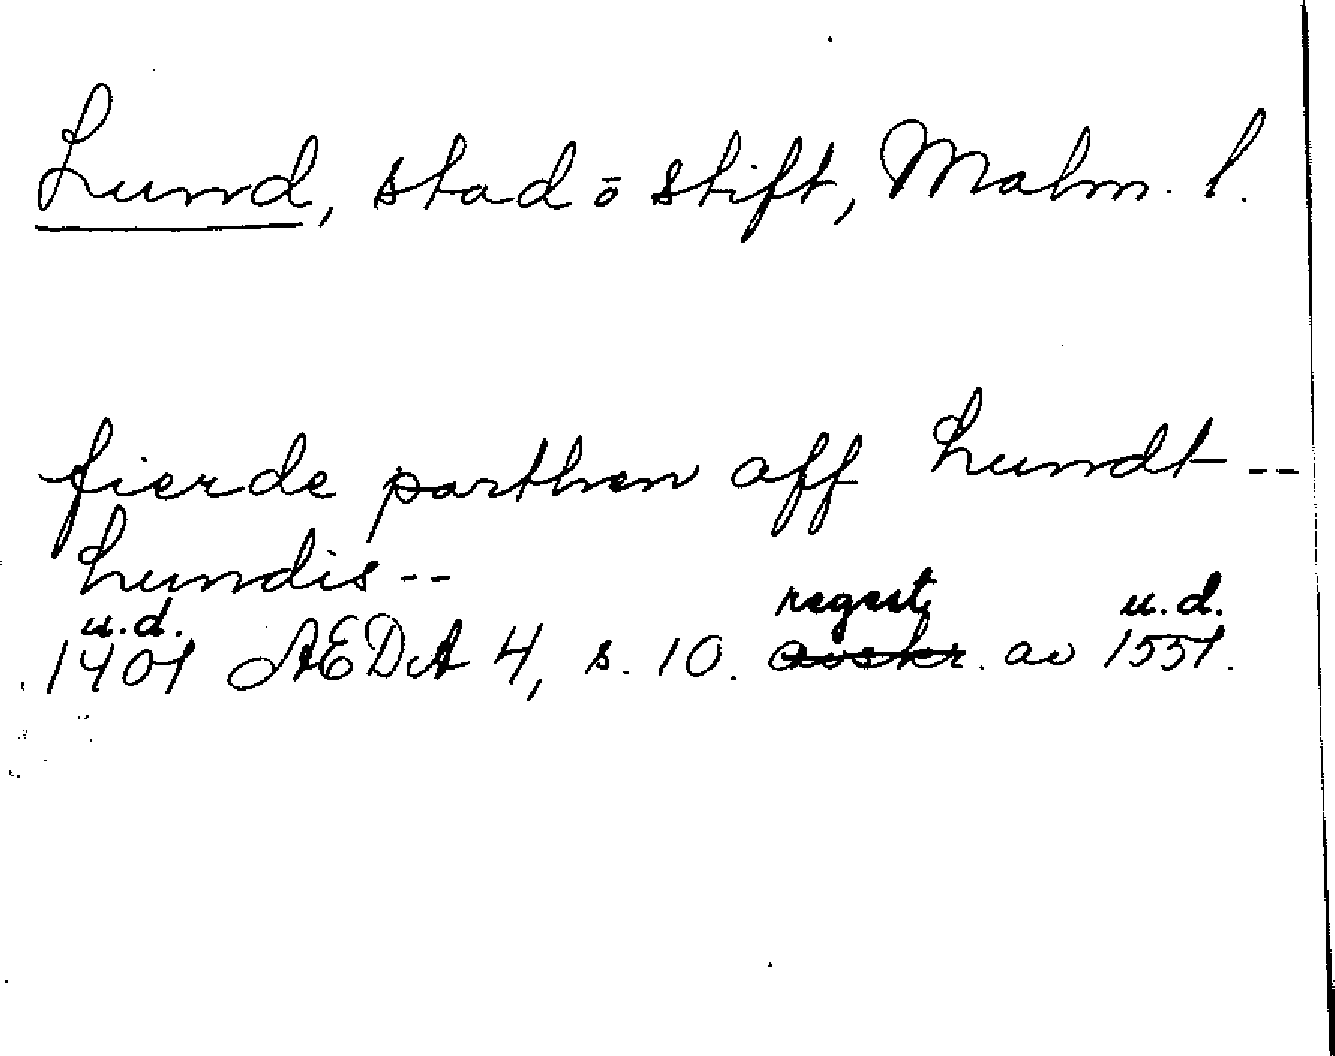 Lund, stad o stift, Malm. l.
fierde parthen aff Lundt --
Lundis --
u.d. regest u.d.
1401 AEDA 4, s. 10. avskr. av 1551.